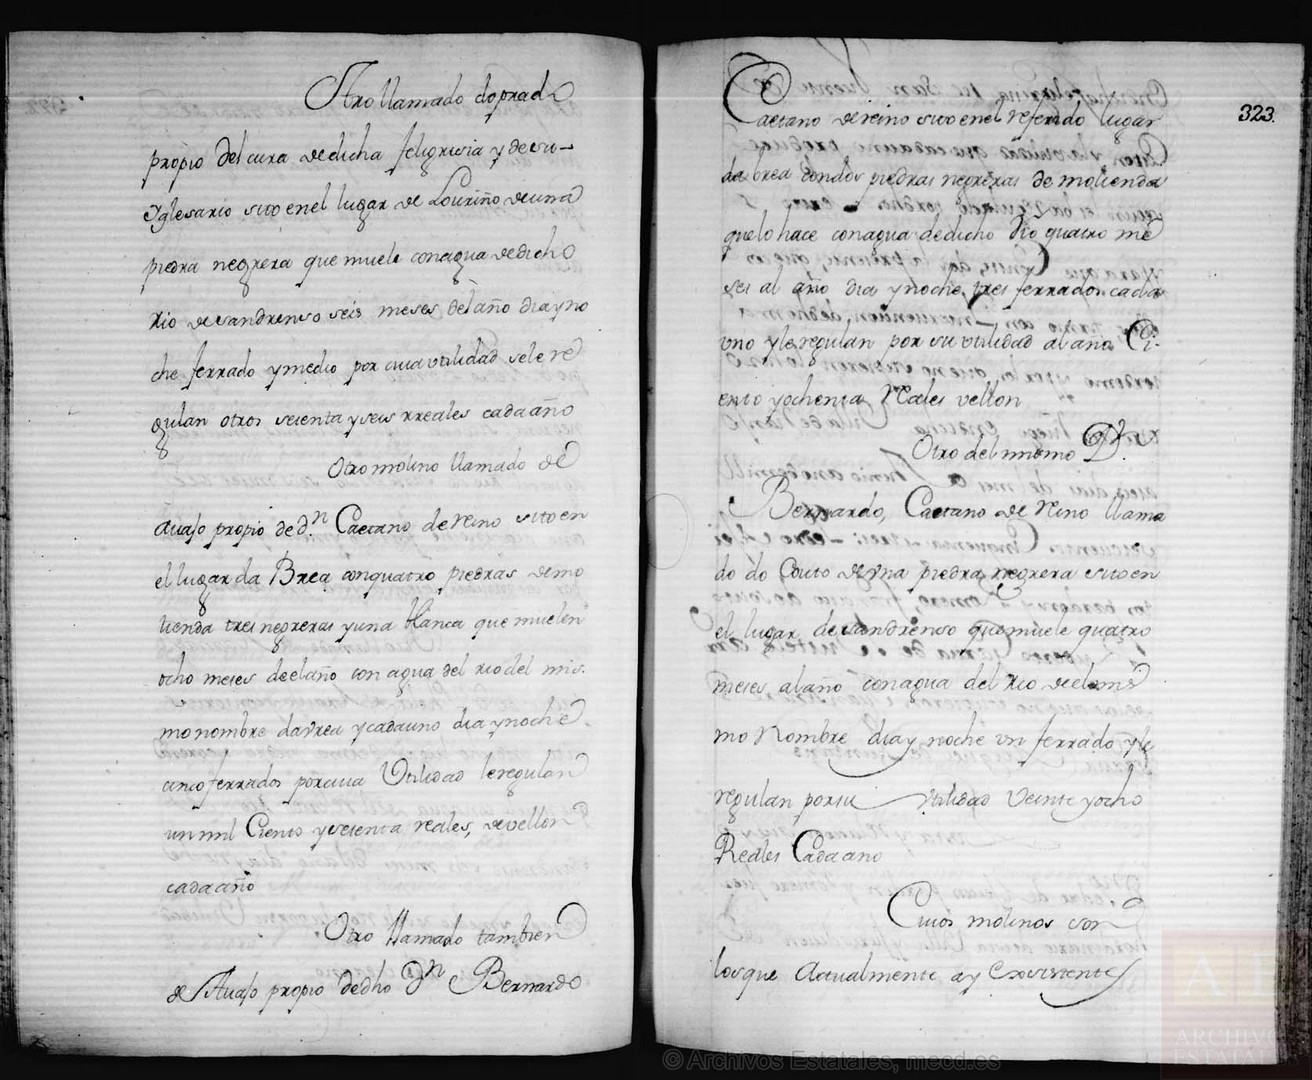 Otro llamado do prado
propio del cura de dicha feligrisia y de su
Yglesario sito en el lugar de Louriño de una
piedra negrera que muele con agua de dicho
Rio de sandrenso seis meses del año dia y no
che ferrado y medio por cuia utilidad se le re
gulan otros setenta y seis rreales cada año
Otro molino llamado de
avajo propio de dn Caetano de Nino sito en
el lugar da Brea con quatro piedras de mo
lienda tres negreras y una blanca que muelen
ocho meses de el año con agua del rio del mis
mo nombre da vrea y cada uno dia y noche
cinco ferrados por cuia Utilidad le regulan
un mil Ciento y setenta reales, de vellon
cada año
Otro llamado tambien
de Avajo propio de dho Dn Bernardo
323.
Caetano de nino sito en el referido lugar
da brea con dos piedras negreras de molienda
que lo hace con agua de dicho Rio quatro me
ses al año dia y noche, tres ferrados cada
uno y le regulan por su utilidad al año Ci-
ento y ochenta Reales vellon
Otro del mismo Dn
Bernardo, Caetano de Nino llama
do do Couto de una piedra negrera sito en
el lugar de sandrenso que muele quatro
meses al año con agua del Rio de el mis
mo Nombre dia y noche un ferrado y le
regulan por su utilidad Veinte y ocho
Reales Cada año
Cuios molinos son
los que Actualmente ay Existentes
© Archivos Estatales, mecd.es
ARCHIVOS
ESTATALES